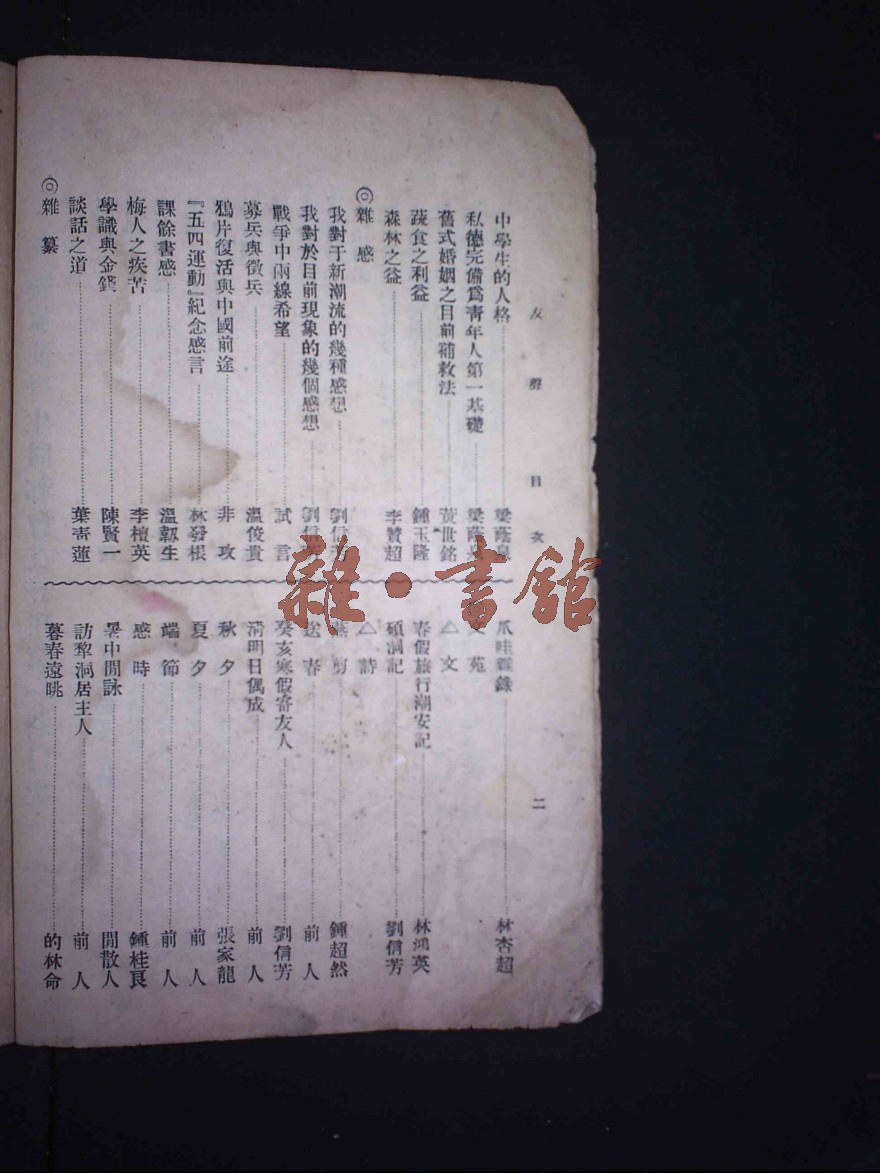 友聲目次
二
中學生的人格 梁蔭
私德完備爲靑年人第一基礎 梁蔭
舊式婚姻之目前補救法 黃世銘
蔬食之利益 鍾玉隆
森林之益 李贊超
◎雜感
我對于新潮流的幾種感想 劉信芳
我對於目前現象的幾個感想 劉信
戰爭中兩線希望 試言
募兵與徵兵 溫俊貴
鴉片復活與中國前途 非攻
『五四運動』紀念感言 林發根
課餘書感 溫毅生
梅人之疾苦 李檀英
學識與金錢 陳賢一
談話之道 葉靑蓮
◎雜纂
爪哇 林杏超
文苑
△文
春假旅行潮安記 林鴻英
碩洞記 劉信芳
△詩
燕剪 鍾超然
送春 前人
癸亥寒假寄友人 劉信芳
淸明日偶成 前人
秋夕 張家龍
夏夕 前人
端節 前人
感時 鍾桂良
暑中閒詠 閒散人
訪犂洞居主人 前人
暮春遠眺 的林命
雜·書館